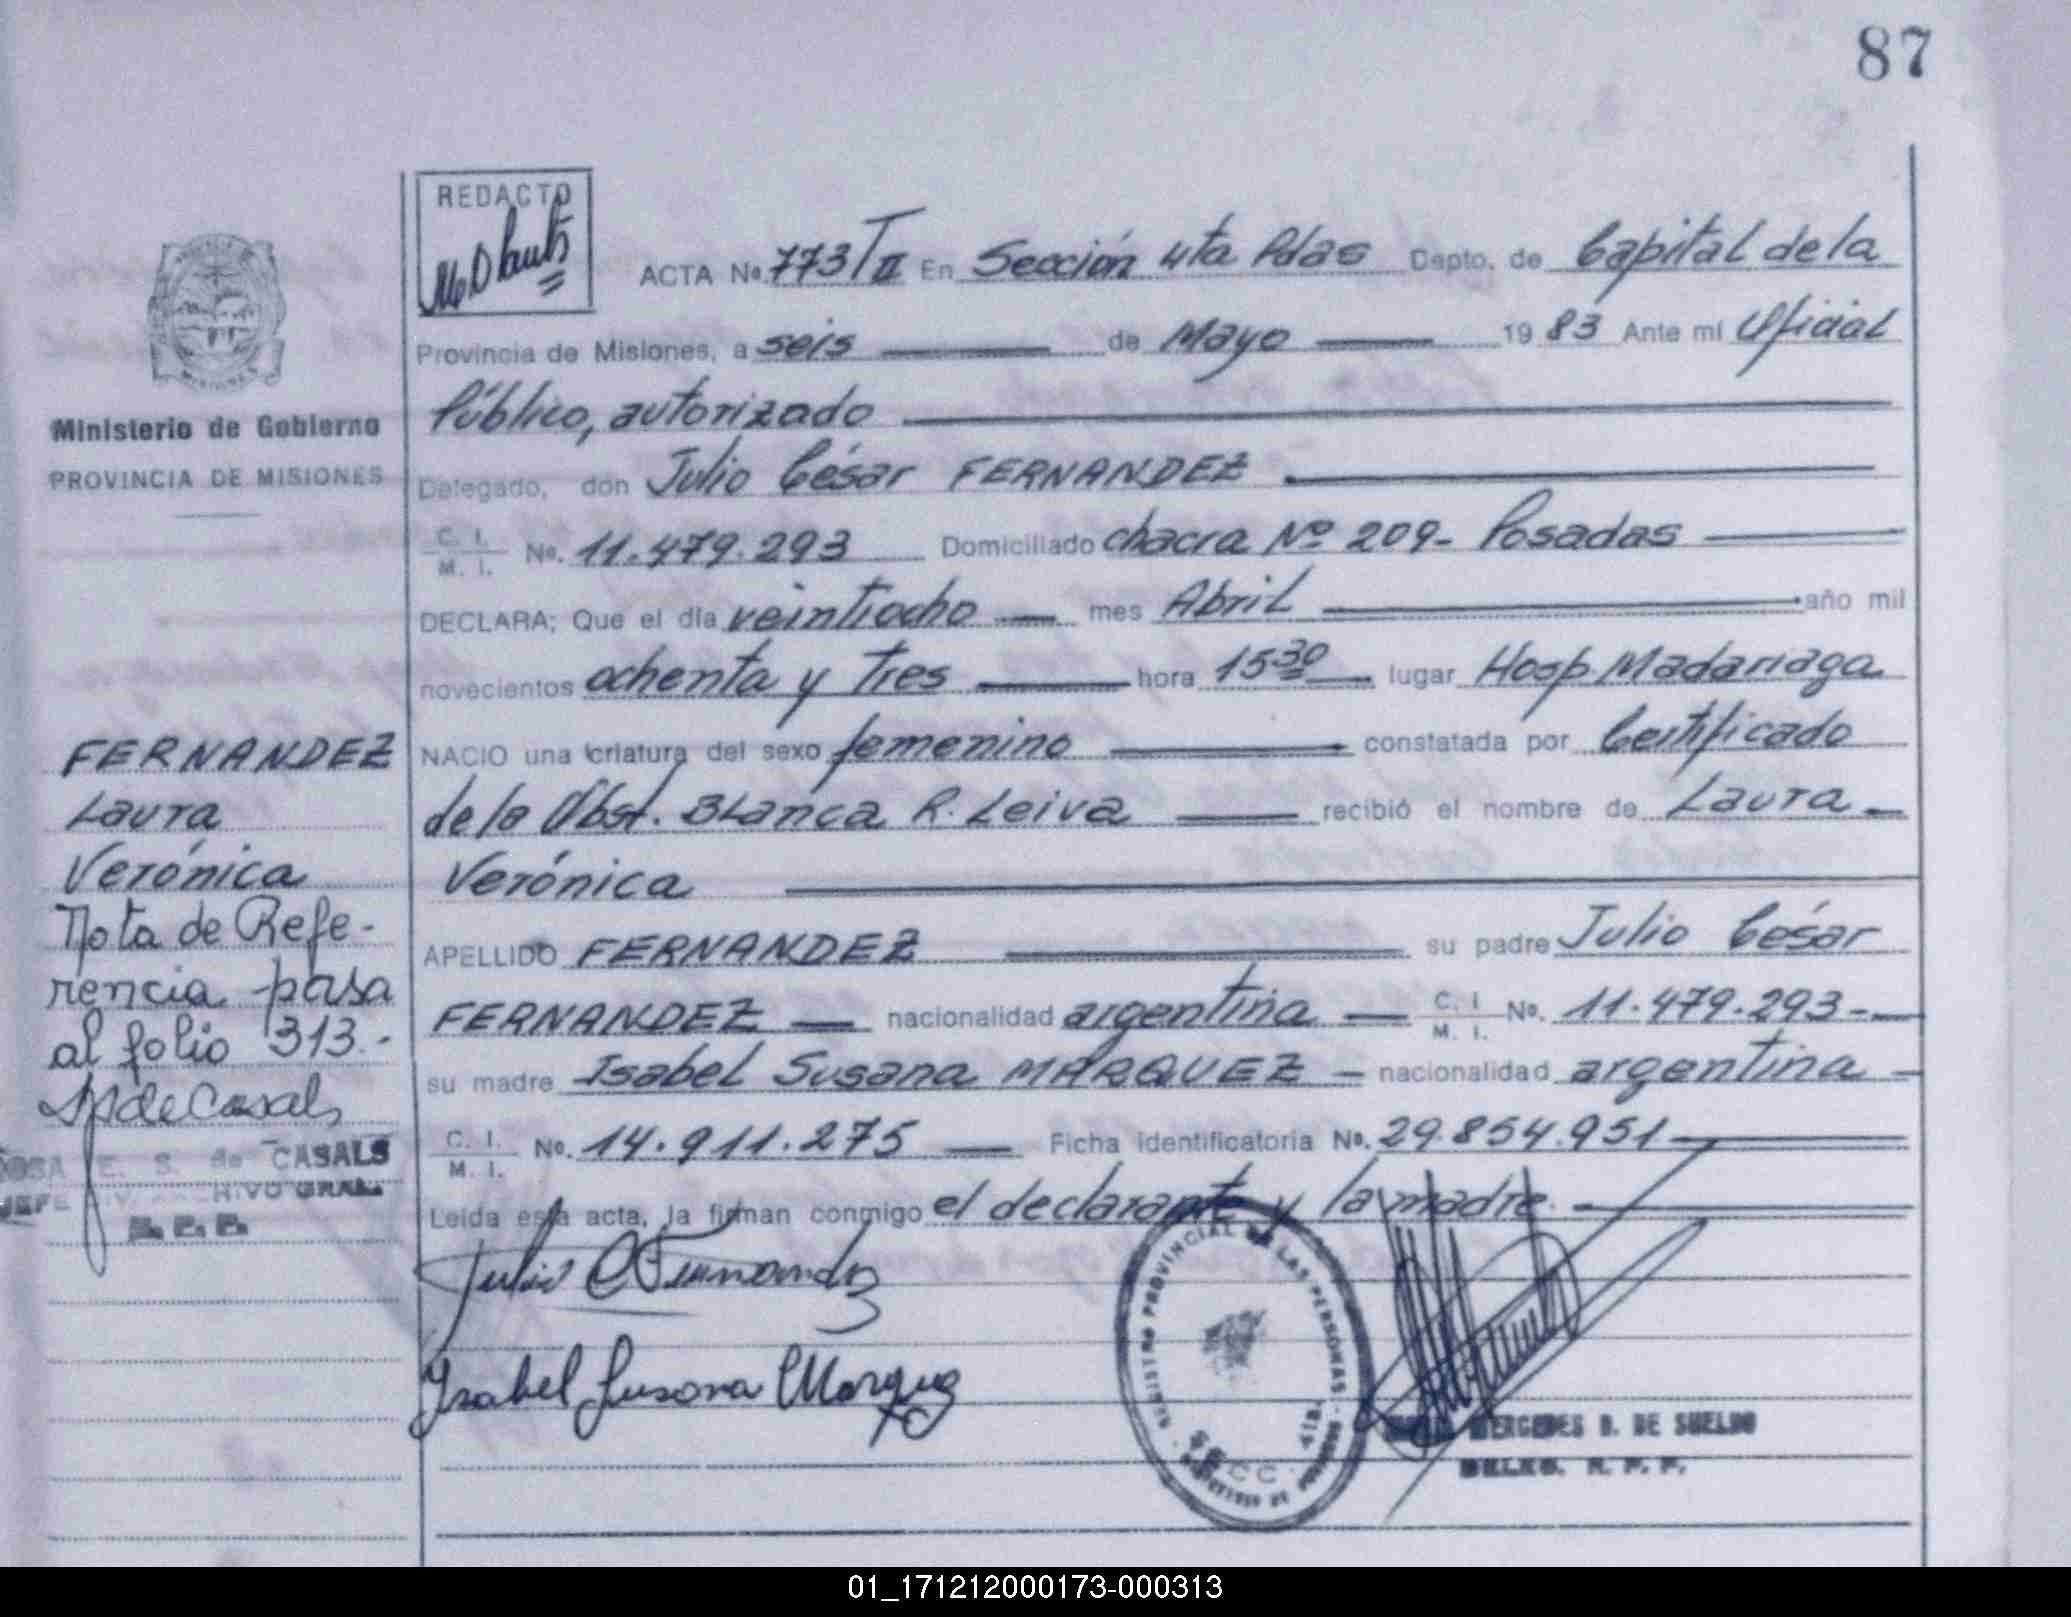 87
REDACTO
ACTA No. 773/T II En Sección 4ta Pdas Dapto. de Capital de la
Provincia de Misiones, a seis de Mayo 19 83 Ante mí Oficial
Público, autorizado
Delegado, don Julio César FERNANDEZ
C. I.
M. I. No. 11.479.293 Domiciliado chacra Nº 209- Posadas
DECLARA; Que el día veintiocho mes Abril año mil
novecientos ochenta y tres hora 15 30 lugar Hosp. Madariaga
NACIO una criatura del sexo femenino constatada por Certificado
de la Obst. Blanca R. Leiva recibió el nombre de Laura
Verónica
APELLIDO FERNANDEZ su padre Julio César
FERNANDEZ nacionalidad argentina C. I.
M. I. No. 11.479.293-
su madre Isabel Susana MARQUEZ nacionalidad argentina
C. I.
M. I. No. 14.911.275 Ficha identificatoria No. 29.854.951
Leída esta acta, la firman conmigo el declarante y la madre.
Julio C Fernandez
Isabel Susana Marquez
REGISTRO PROVINCIAL DE LAS PERSONAS
SECC. 4TA.
MERCEDES D. DE SUELDO
DELEG. R. P. P.
MISIONES
Ministerio de Gobierno
PROVINCIA DE MISIONES
FERNANDEZ
Laura
Verónica
Nota de Refe-
rencia pasa
al folio 313.-
E. S. de CASALS
JEFE DIV. ARCHIVO GRAL.
R. P. P.
01_171212000173-000313